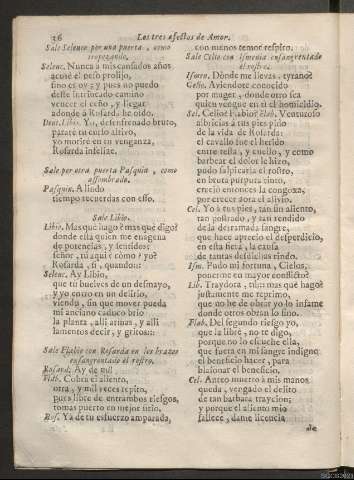 36 Los tres afectos de Amor.
Sale Seleuco por una puerta, como
tropezando.
Seleuc. Nunca a mis cansados años
acusé el peso prolijo,
sino es oy; y pues no puedo
deste intrincado camino
vencer el ceño, y llegar
adonde à Rosarda he oìdo.
Dent. Libio. Yo, desenfrenado bruto,
pararè tu curso altivo,
yo morirè en tu venganza,
Rosarda infelize.
Sale por otra puerta Pasquin, como
assombrado.
Pasquin. A lindo
tiempo recuerdas con esso.
Sale Libio.
Libio. Mas què hago? mas què digo?
donde està quien me enagena
de potencias, y sentidos?
señor, tù aqui? còmo? yo?
Rosarda, si, quando::-
Seleuc. Ay Libio,
que tù buelves de un desmayo,
y yo entro en un delirio,
viendo, sin que mover pueda
mi anciano caduco brio
la planta, allì armas, y allì
lamentos decir, y gritos::-
Sale Flabio con Rosarda en los brazos
ensangrentado el rostro.
Rosard. Ay de mì!
Flab. Cobra el aliento,
otra, y mil veces repito,
pues libre de entrambos riesgos,
tomas puerto en mejor sitio.
Ros. Ya de tu esfuerzo amparada,
con menos temor respiro.
Sale Celio con Ismenia ensangrentado
el rostro.
Ismen. Dònde me llevas, tyrano?
Celio. Aviendote conocido
por muger, donde otro sea
quien vengue en tì el homicidio.
Sel. Celio? Flabio?
albricias à tus pies pido
de la vida de Rosarda:
el cavallo fue el herido
entre testa, y cuello, y como
barbear el dolor le hizo,
pudo salpicarla el rostro,
en bruta purpura tinto,
creciò entonces la congoxa,
por crecer aora el alivio.
Cel. Yo à tus pies, tan sin aliento,
tan postrado, y tan rendido
de la derramada sangre,
que hace aprecio el desperdicio,
en esta fiera, la causa
de tantas desdichas rindo.
Ism. Pudo mi fortuna, Cielos,
ponerme en mayor conflicto?
Lib. Traydora, mas què hago?
justamente me reprimo,
que no he de obrar yo lo infame
donde otros obran lo fino.
Flab. Del segundo riesgo yo,
que la librè, no te digo,
porque no lo escuche ella,
que fuera en mi sangre indigno
el beneficio hacer, para
blasonar el beneficio.
Cel. Antes muerto à mis manos
queda, vengado el delito
de tan barbara traycion;
y porque el aliento mio
fallece, dame licencia
de